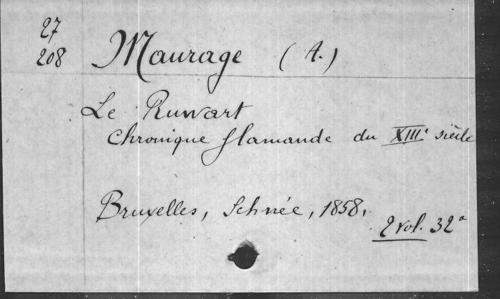 27
208
Maurage (A.)
Le Ruwart
Chronique flamande du XIIIe siècle
Bruxelles, Schnée, 1858.
2 vol. 32°